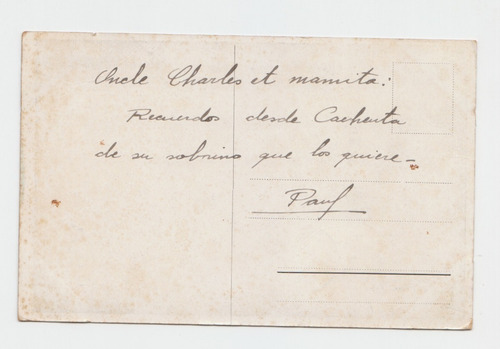 Oncle Charles et mamita:
Recuerdos desde Cacheuta
de su sobrino que los quiere –
Paul